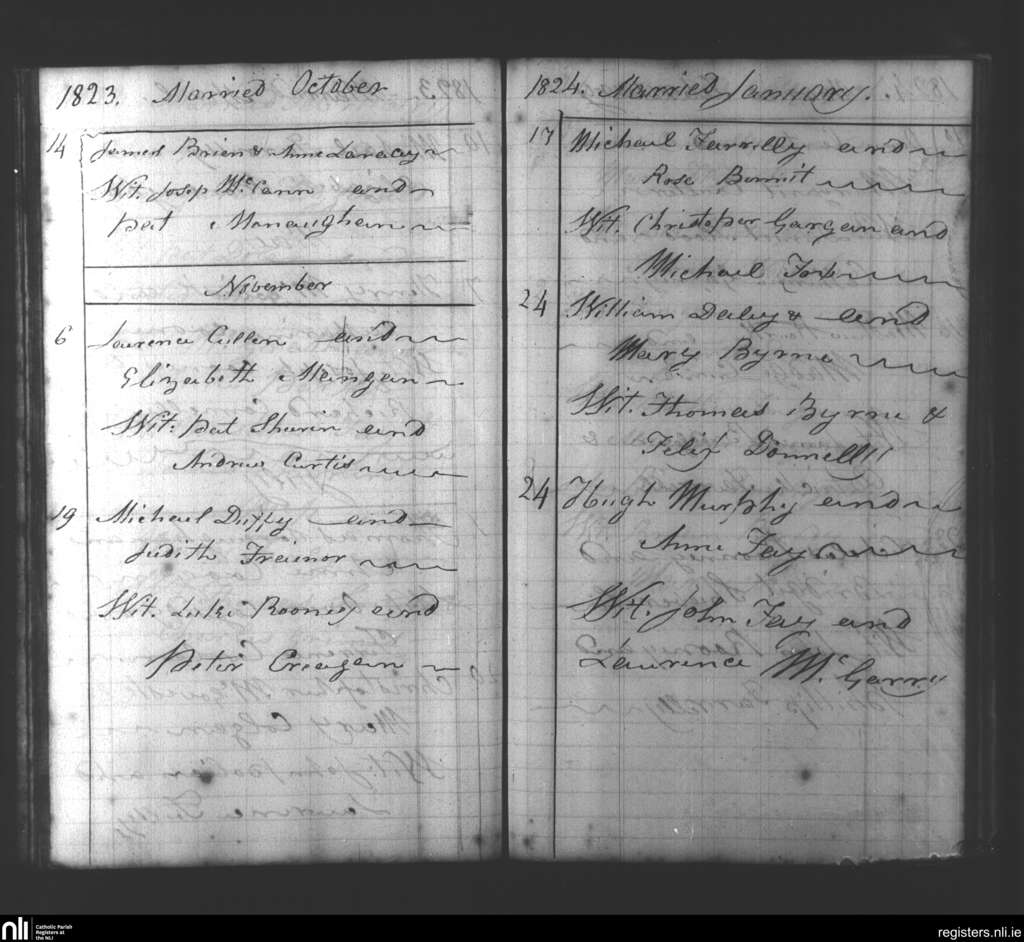 1823. Married October
14 James Brien & Anne Laracy
Wit. Josep McCann and
Pat Monaughan
November
6 Laurence Cullen and
Elizabeth Mangan
Wit. Pat Shirin and
Andrew Curtis
19 Michael Duffy and
Judith Frainor
Wit. Luke Rooney and
Peter Creagan
1824. Married January.
17 Michael Farrilly and
Rose Bennit
Wit. Christoper Gargan and
Michael
24 William Daley & and
Mary Byrne
Wit. Thomas Byrne &
Felix Donnelly
24 Hugh Murphy and
Anne Fay
Wit. John Fay and
Laurence McGarry
nli Catholic Parish
Registers at
the NLI
registers.nli.ie